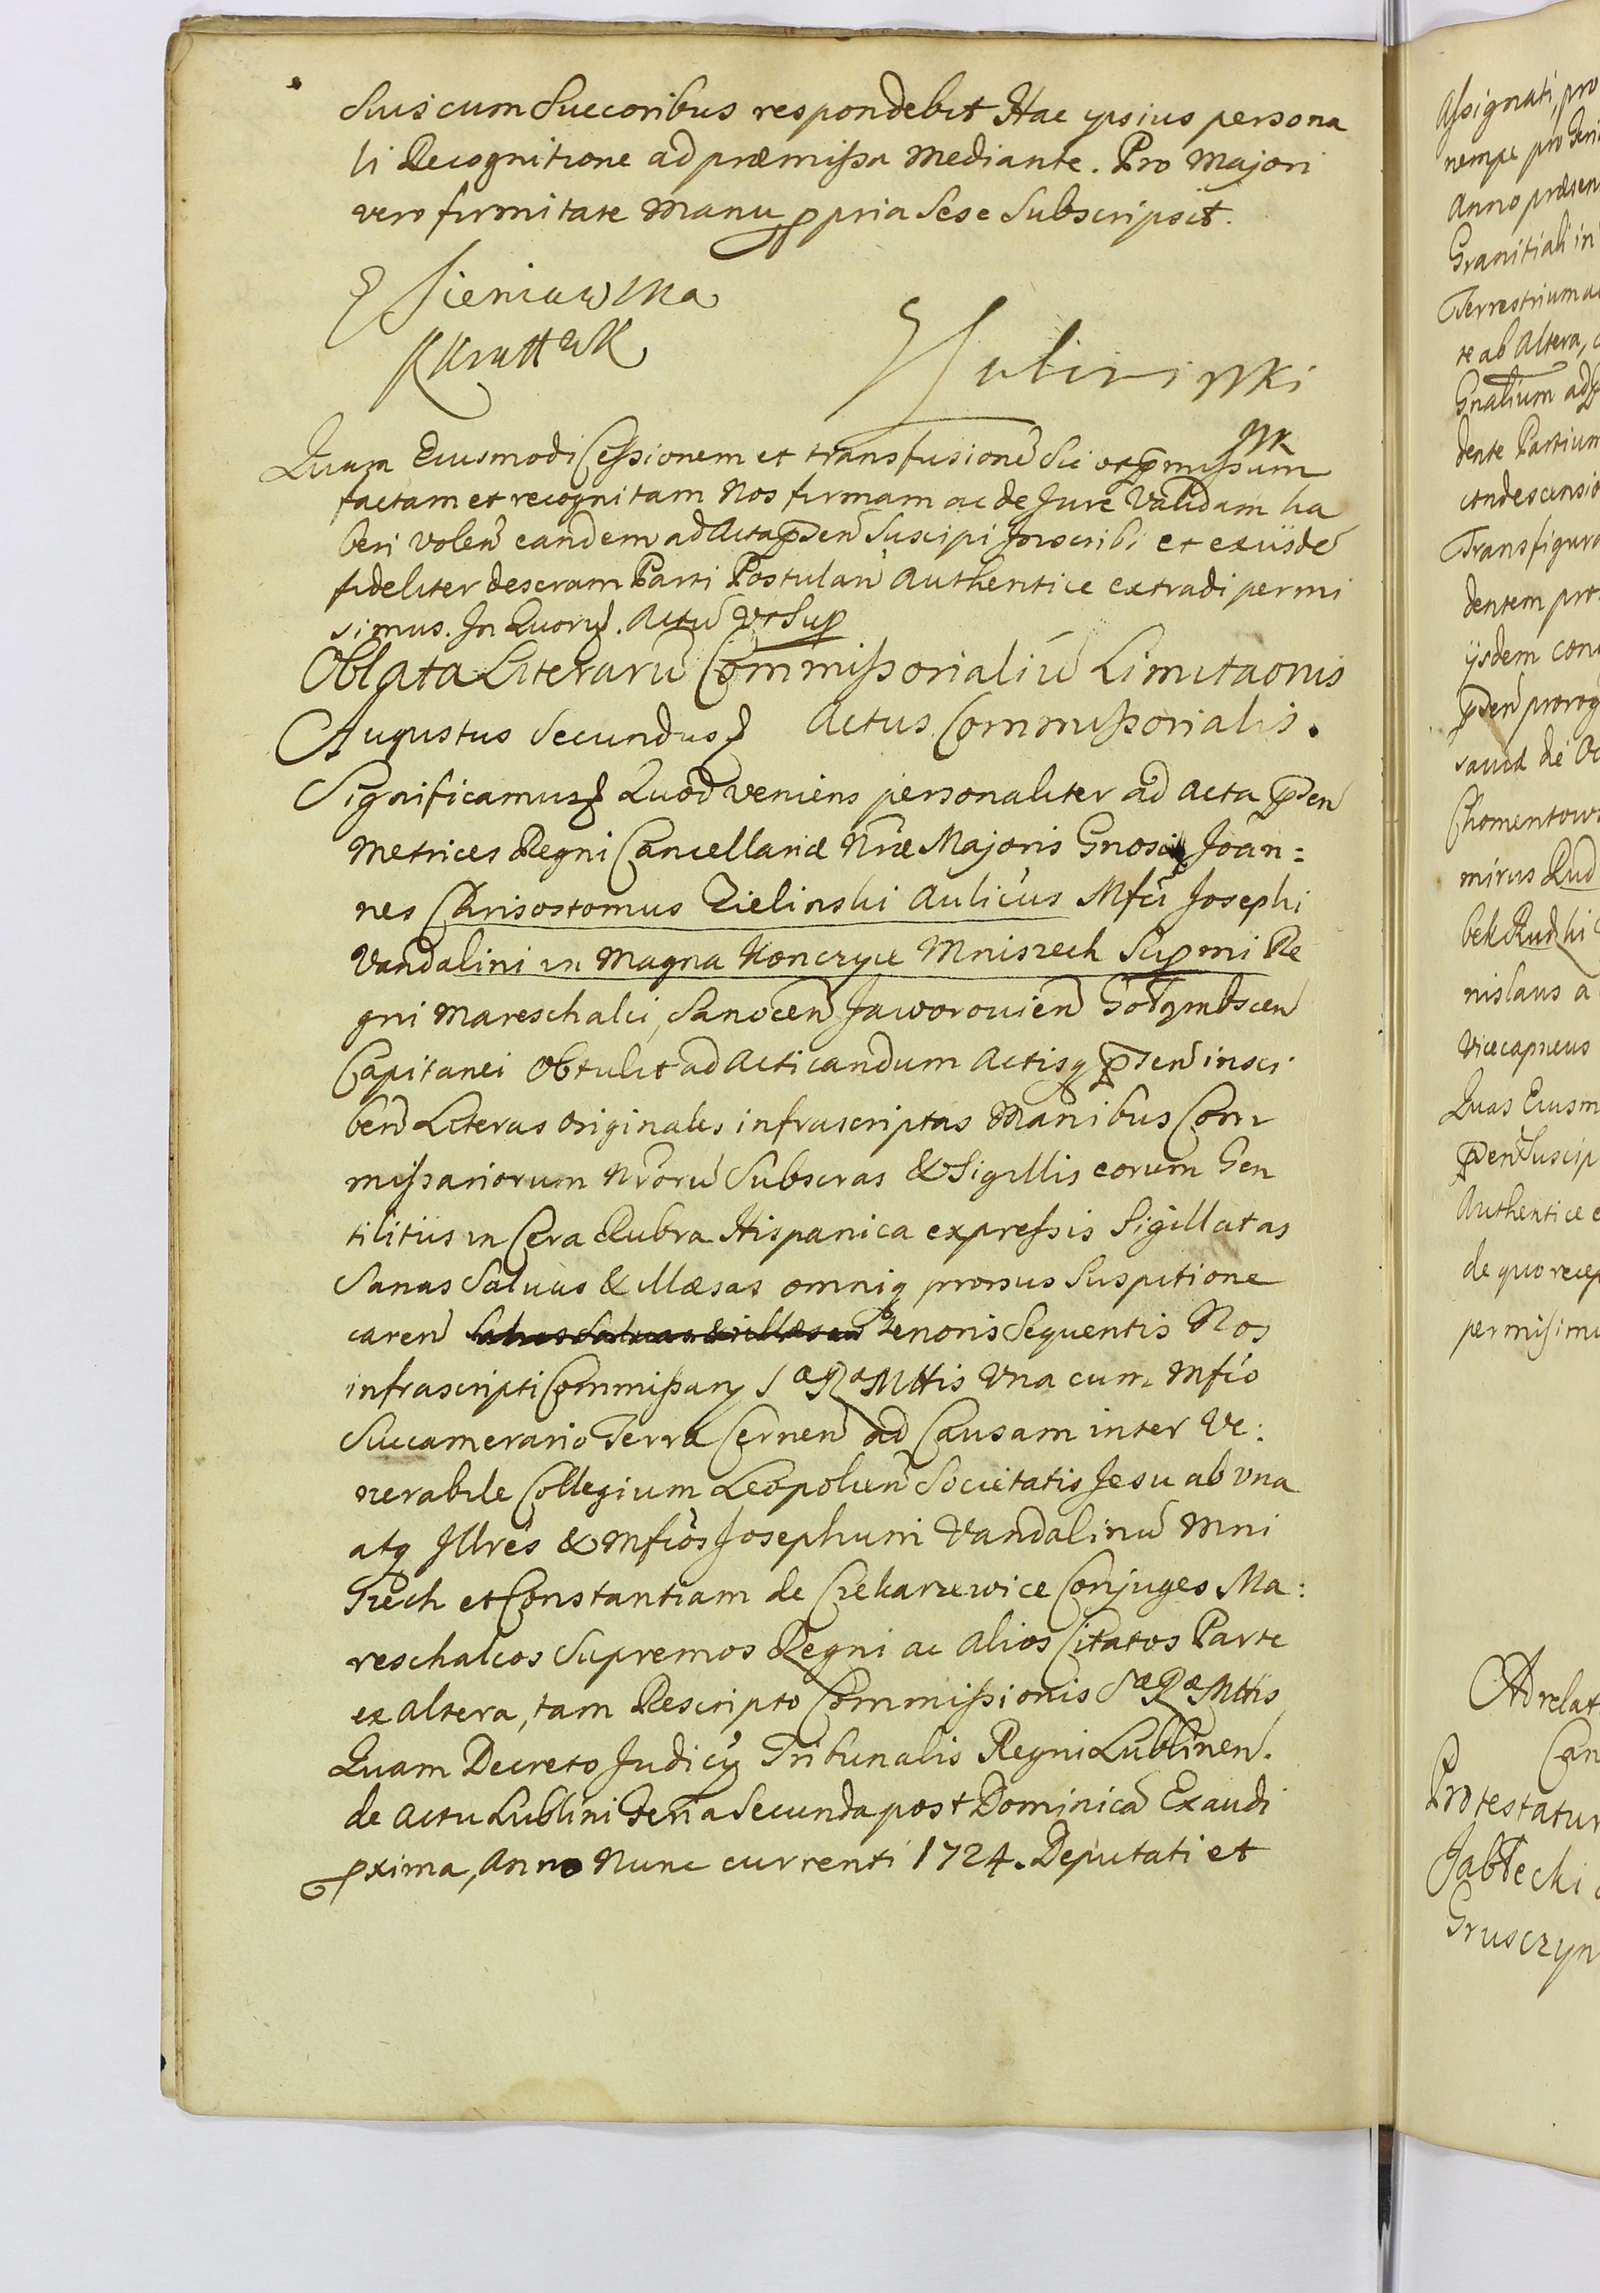 Suis cum Succoribus respondebit Hac ipsius persona
li Recognitione ad præmissa Mediante. Pro Majori
vero firmitate Manu ppria Sese Subscripsit.
E Sieniawska
Quam Eiusmodi Cessionem et transfusionē Sic ut pmissum
factam et recognitam Nos firmam ac de Jure Validam ha
beri Volen̄ eandem ad Acta pn̄sen̄ Suscipi Inscribi et exijsde
fideliter descram Parti Postulan̄ Authentice extradi permi
simus. In Quorū. Actū Ut Sup
Oblata Literarū Commissorialiū Limitaonis
Actus Commissorialis.
Augustus Secundus
Significamus Quod veniens personaliter ad Acta pn̄sen̄
Metrices Regni Cancellariæ Nræ Majoris Gnosus Joan=
nes Chrisostomus Zielinski Aulicus Mfci Josephi
Vandalini in Magna Konczyce Mniszech Supmi Re
gni Mareschalci, Sanocen̄ Jaworovien̄ Gołymbscen̄
Capitanei Obtulit ad Acticandum Actisq pn̄sen̄ insci
ben̄ Literas Originales infrascriptas Manibus Com
missariorum Nrorū Subscras & Sigillis eorum Gen
tilitiis in Cera Rubra Hispanica expressis Sigillatas
Sanas Salvas & illæsas omniq prorsus Suspitione
caren̄ Sanas Salvas & illæsas tenoris Sequentis Nos
infrascripti Commissary Sæ Ræ Mttis Una cum Mfco
Succamerario Terra Cernen̄ ad Causam inter Ve:
nerabile Collegium Leopolien̄ Societatis Jesu ab una
atq Illres & Mfcos Josephum Vandalinū Mni
szech et Constantiam de Ciekarzewice Conjuges Ma:
reschalcos Supremos Regni ac Alios Citatos Parte
ex Altera, tam Rescripto Commissionis Sæ Ræ Mttis
Quam Decreto Judicij Tribunalis Regni Lublinen̄.
de Actu Lublini Feria Secunda post Dominicā Exaudi
pxima, Anno Nunc currenti 1724. Deputati et
Assignati, pro
nempe pro
Anno præsen
Granitiali in
Terrestrium
te ab Altera,
Gnalium ad
dente Partium
condescensio
Transfigura
dentem
ijsdem
pn̄sen̄ prorog
Chomentows
mirus Rud
bek Rudzki
nislaus a
Vicecapneus
Quas Eiusm
pn̄sen̄ Suscip
Authentice e
de quo recep
permisimu
Ad relat
Can
Protestatur
Jabłecki
Grusczyn